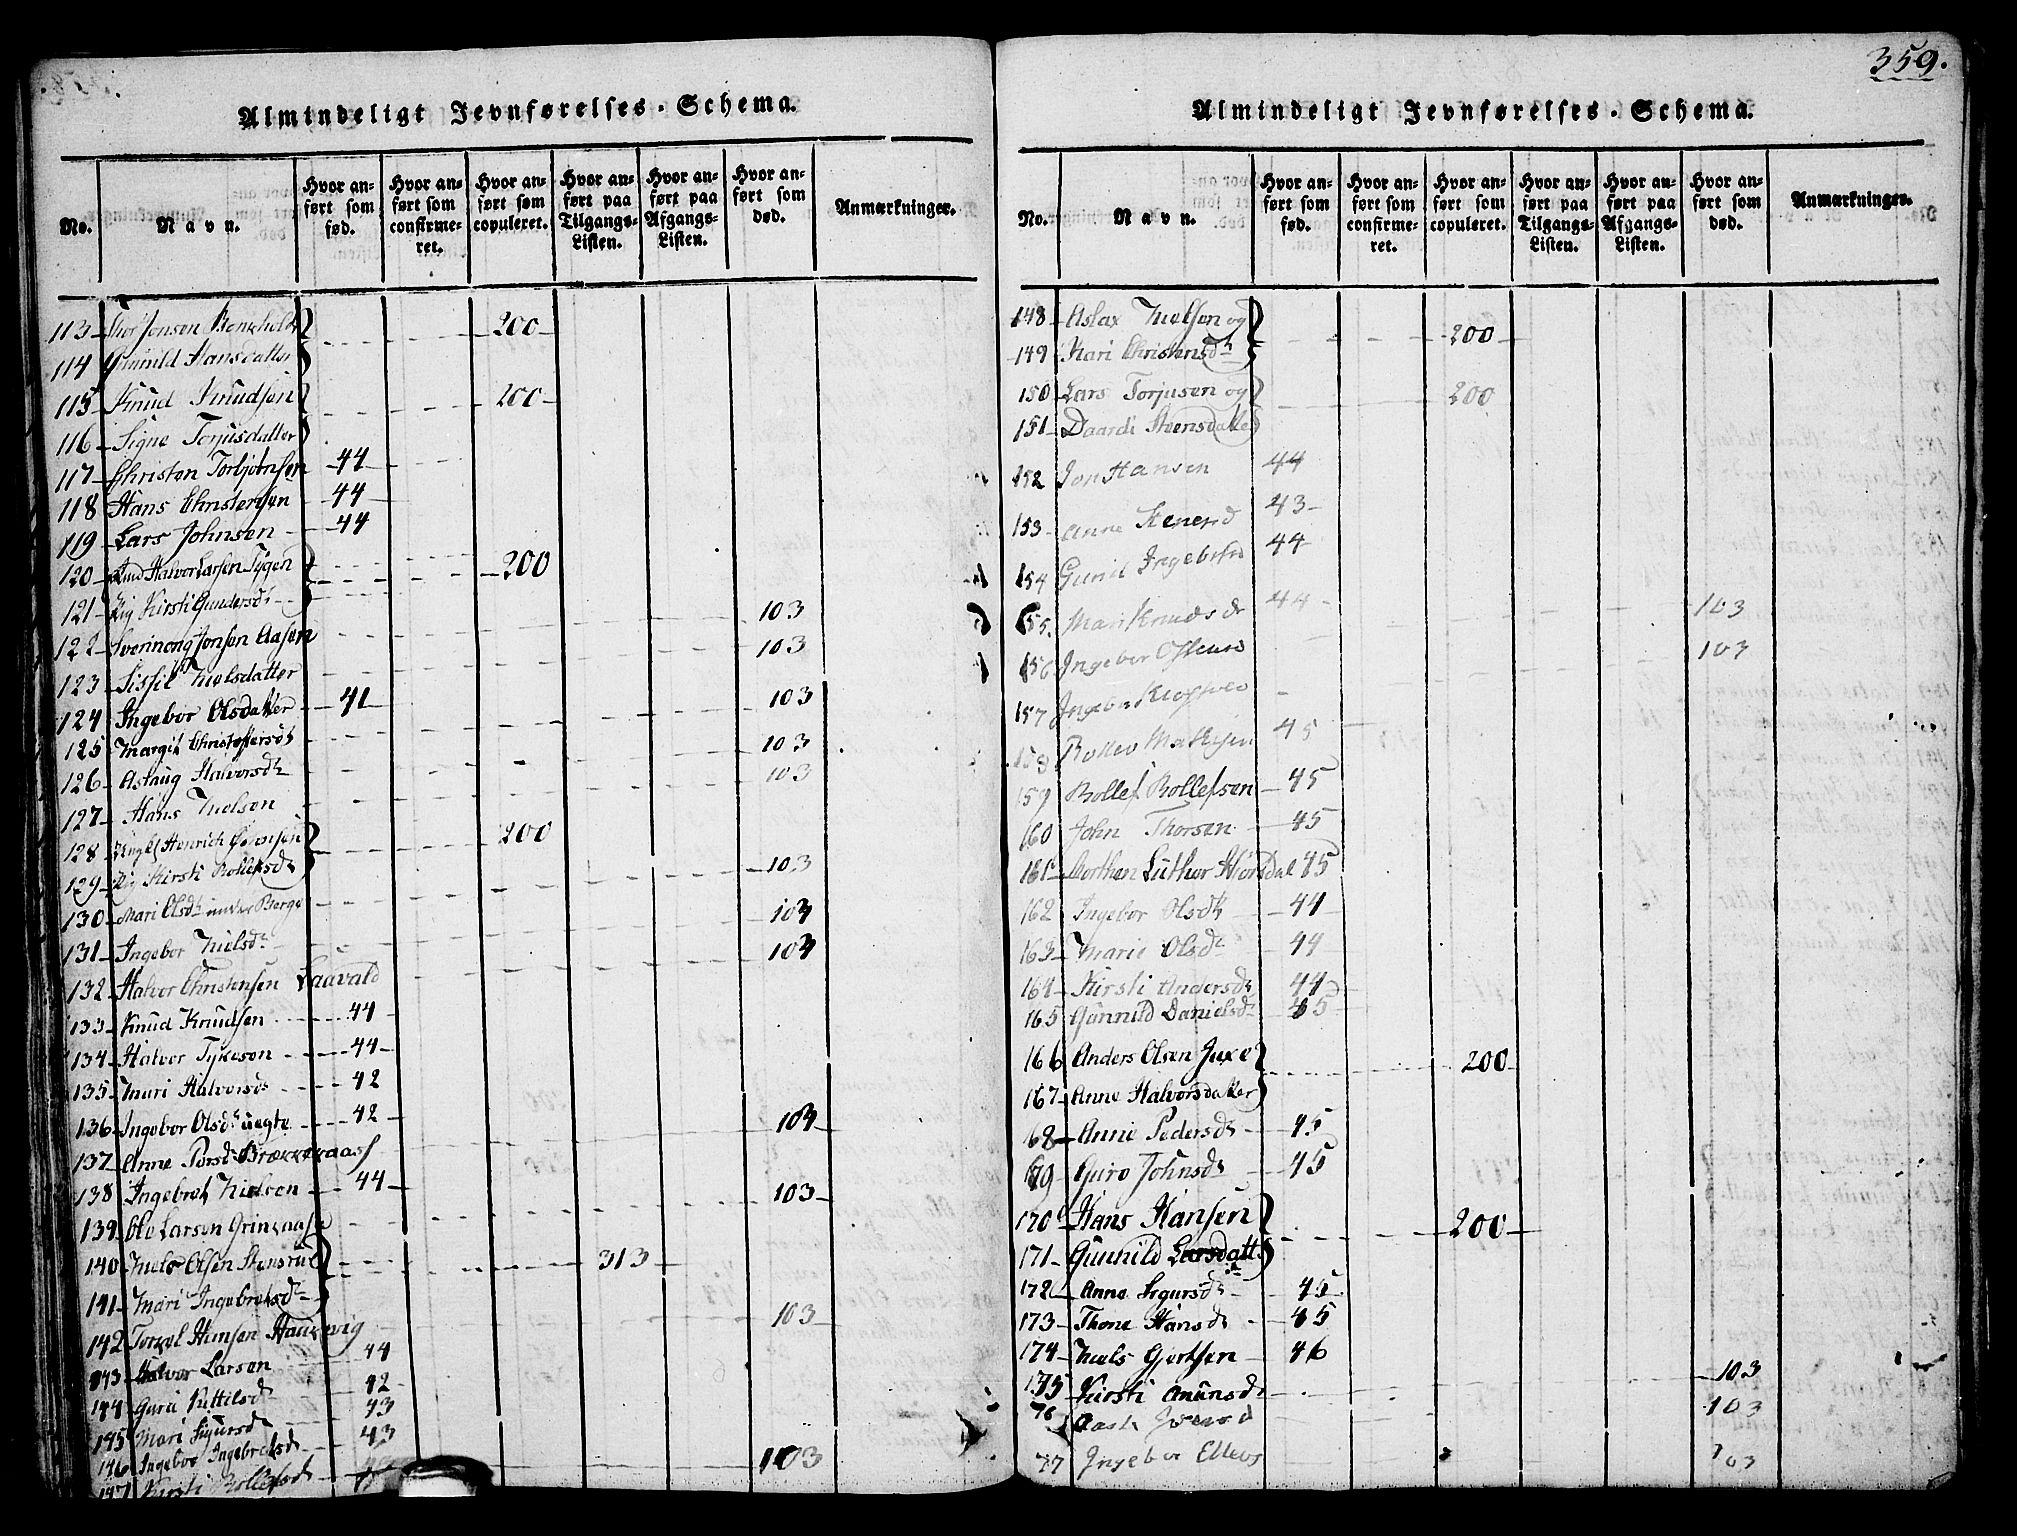 359.
Almindeligt Jevnførelses-Schema.
No.
Navn.
Hvor an-
ført som
fød.
Hvor an-
ført som
confirme-
ret.
Hvor an-
ført som
copuleret.
Hvor an-
ført paa
Tilgangs-
Listen.
Hvor an-
ført paa
Afgangs-
Listen.
Hvor an-
ført som
død.
Anmærkninger.
113 Thor Jonson 200
114 Gunild Hansdatter
115 Knud Knudsen 200
116 Signe Torjusdatter
117 Christen Torbjörnsen 44
118 Hans Christensen 44
119 Lars Johnsen 44
120 Halvor Larsen 200
121 Kirsti Gundersdr
122 Jonsen Aasen 103
123 Sissil Nielsdatter 103
124 Ingebor Olsdatter 41
125 Margit Christophersdr 103
126 Aslaug Halvorsdr 103
127 Hans Nielsen 103
128 Henrich 200
129 Kirsti Rollefsdr
130 Mari Olsdr under Berge 103
131 Ingebor Nielsdr 103
132 Halvor Christensen Laavald 103
133 Knud Knudsen 44
134 Halvor Tykeson 44
135 Mari Halvorsdr 42
136 Ingebor Olsdr uægte 42
137 Anne 103
138 Ingebret Nielsen 44
139 Ole Larsen 103
140 Niels Olsen Stensrud 313
141 Mari Ingebretsdr
142 Torkel Hansen Haukevig 103
143 Halvor Larsen 44
144 Guru Kittilsd 42
145 Mari Sigursd 43
146 Ingebor Ingebretsdr 43
147 Kirsti Rollefsdr
103
Almindeligt Jevnførelses-Schema.
No.
Navn.
Hvor an-
ført som
fød.
Hvor an-
ført som
confirme-
ret.
Hvor an-
ført som
copuleret.
Hvor an-
ført paa
Tilgangs-
Listen.
Hvor an-
ført paa
Afgangs-
Listen.
Hvor an-
ført som
død.
Anmærkninger.
148 Aslax Nielsen og 200
149 Kari Christensdr
150 Lars Torjusen og 200
151 Daardi Steensdatter
152 Jon Hansen 44
153 Anne Stenersd 43
154 Gunil Ingebrsd 44
155 Mari Knudsdr 44
156 Ingebor 103
157 Ingebor 103
158 Rollev Mathisen 45
159 Rollef Rollefsen 45
160 John Thorsen 45
161 Morthen Luther 45
162 Ingebor Olsdr 44
163 Marie Olsdr 44
164 Kirsti Andersdr 44
165 Gunnild Danielsdr 45
166 Anders Olsen Juxe 200
167 Anne Halvorsdatter
68 Anne Pedersdr 45
69 Guro Johnsdr 45
170 Hans Hansen 200
171 Gunnild Larsdatt
172 Anne Sigursdr 45
173 Thone Hansdr 45
174 Niels Gjertsen 46
175 Kirsti Amunsdr 103
76 103
77 Ingebor Ellevs 103